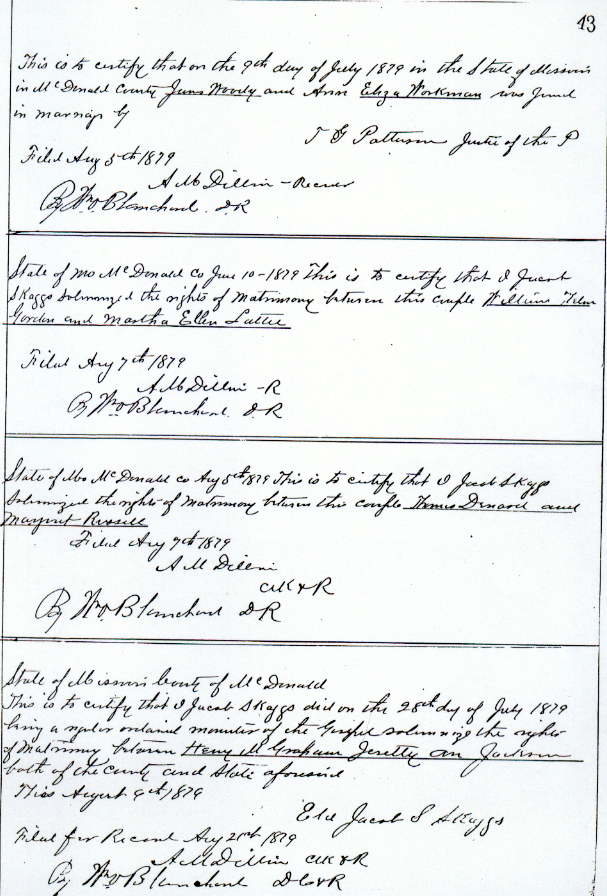 43
This is to certify that on the 9th day of July 1879 in the State of Missouri
in McDonald County James Woody and Ann Eliza Workman was joined
in marriage by
T G Patterson Justice of the P
Filed Aug 5th 1879
A M Dillin - Recorder
By Wm Blanchard D R
State of Mo McDonald Co June 10 - 1879 This is to certify that I Jacob
Skaggs Solemnized the rights of Matrimony between this couple William
Gordon and Martha Ellen Lattie
Filed Aug 7th 1879
A M Dillin - R
By Wm Blanchard D R
State of Mo McDonald Co Aug 5th 1879 This is to certify that I Jacob Skaggs
Solemnized the rights of Matrimony between this couple Thomas Denard and
Margret Russell
Filed Aug 7th 1879
A M Dillin
Clk & R
By Wm Blanchard D R
State of Missouri County of McDonald
This is to certify that I Jacob Skaggs did on the 28th day of July 1879
being a regular ordained minister of the Gospel solemnize the rights
of Matrimony between Henry M Graham an Jackson
both of the county and State aforesaid
This August 9th 1879
Eld Jacob S Skaggs
Filed for Record Aug 21st 1879
A M Dillin Clk & R
By Wm Blanchard D C & R